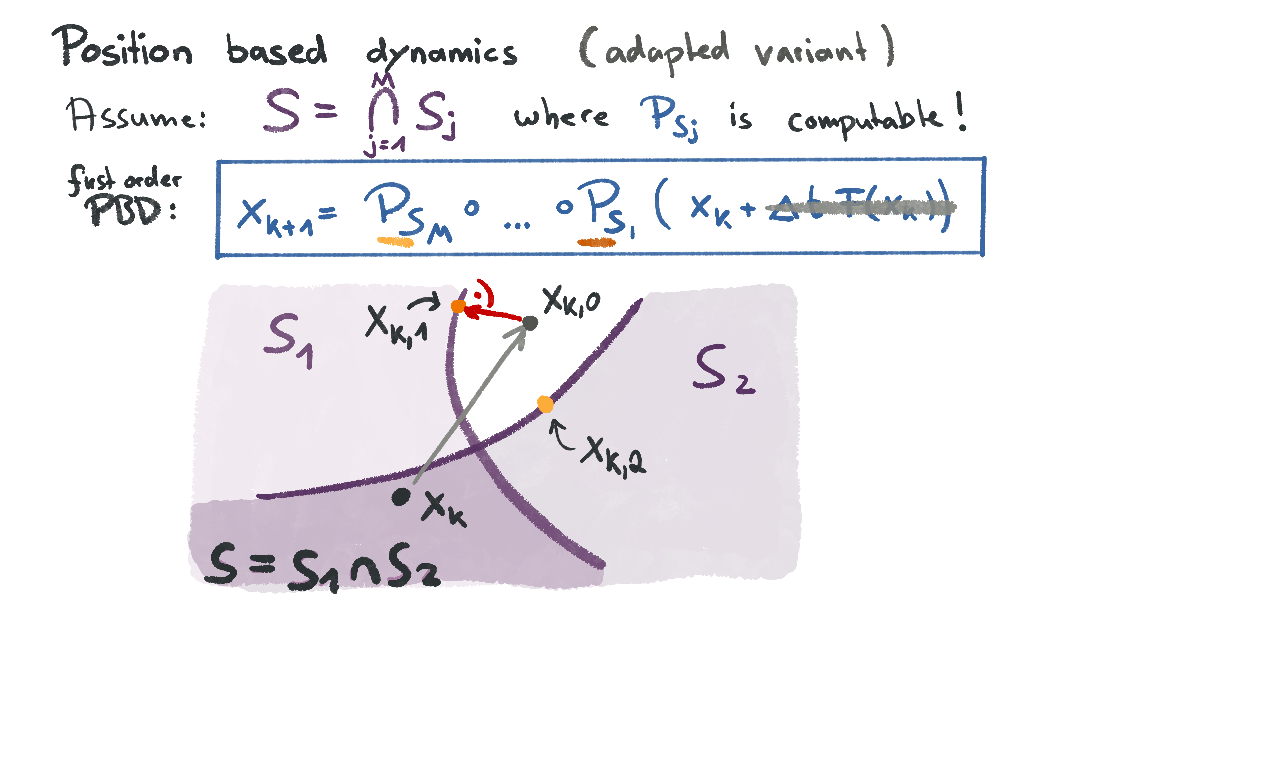 Position based dynamics (adapted variant)
Assume: S = ⋂_{j=1}^{M} S_j where P_{S_j} is computable!
first order
PBD: x_{k+1} = P_{S_M} ∘ ... ∘ P_{S_1} ( x_k +
x_{k,0}
x_{k,1}
S_1
S_2
x_{k,2}
x_k
S = S_1 ∩ S_2